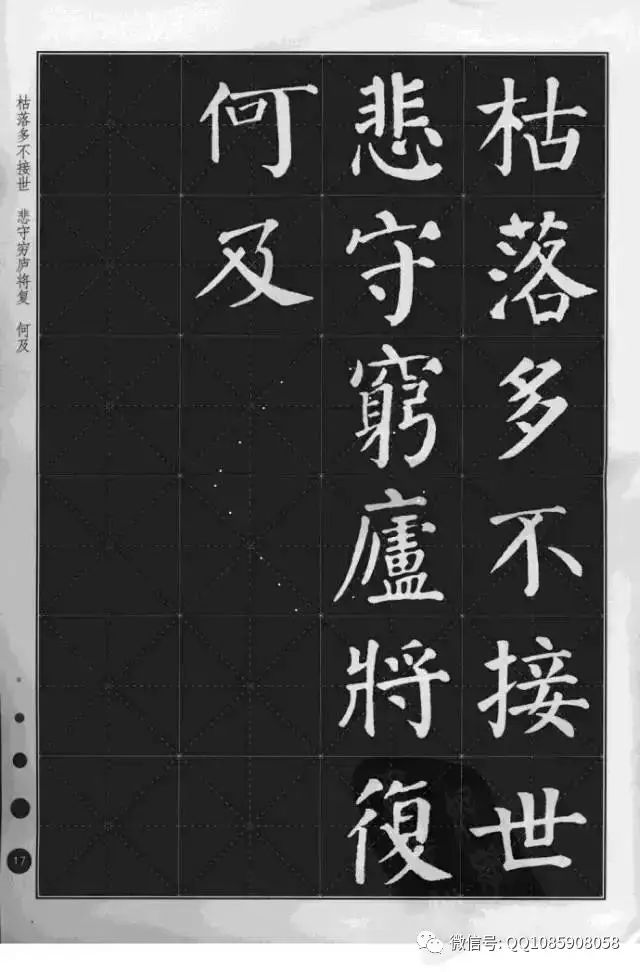 枯落多不接世
悲守窮廬將復
何及
枯落多不接世 悲守穷庐将复 何及
17
微信号: QQ1085908058